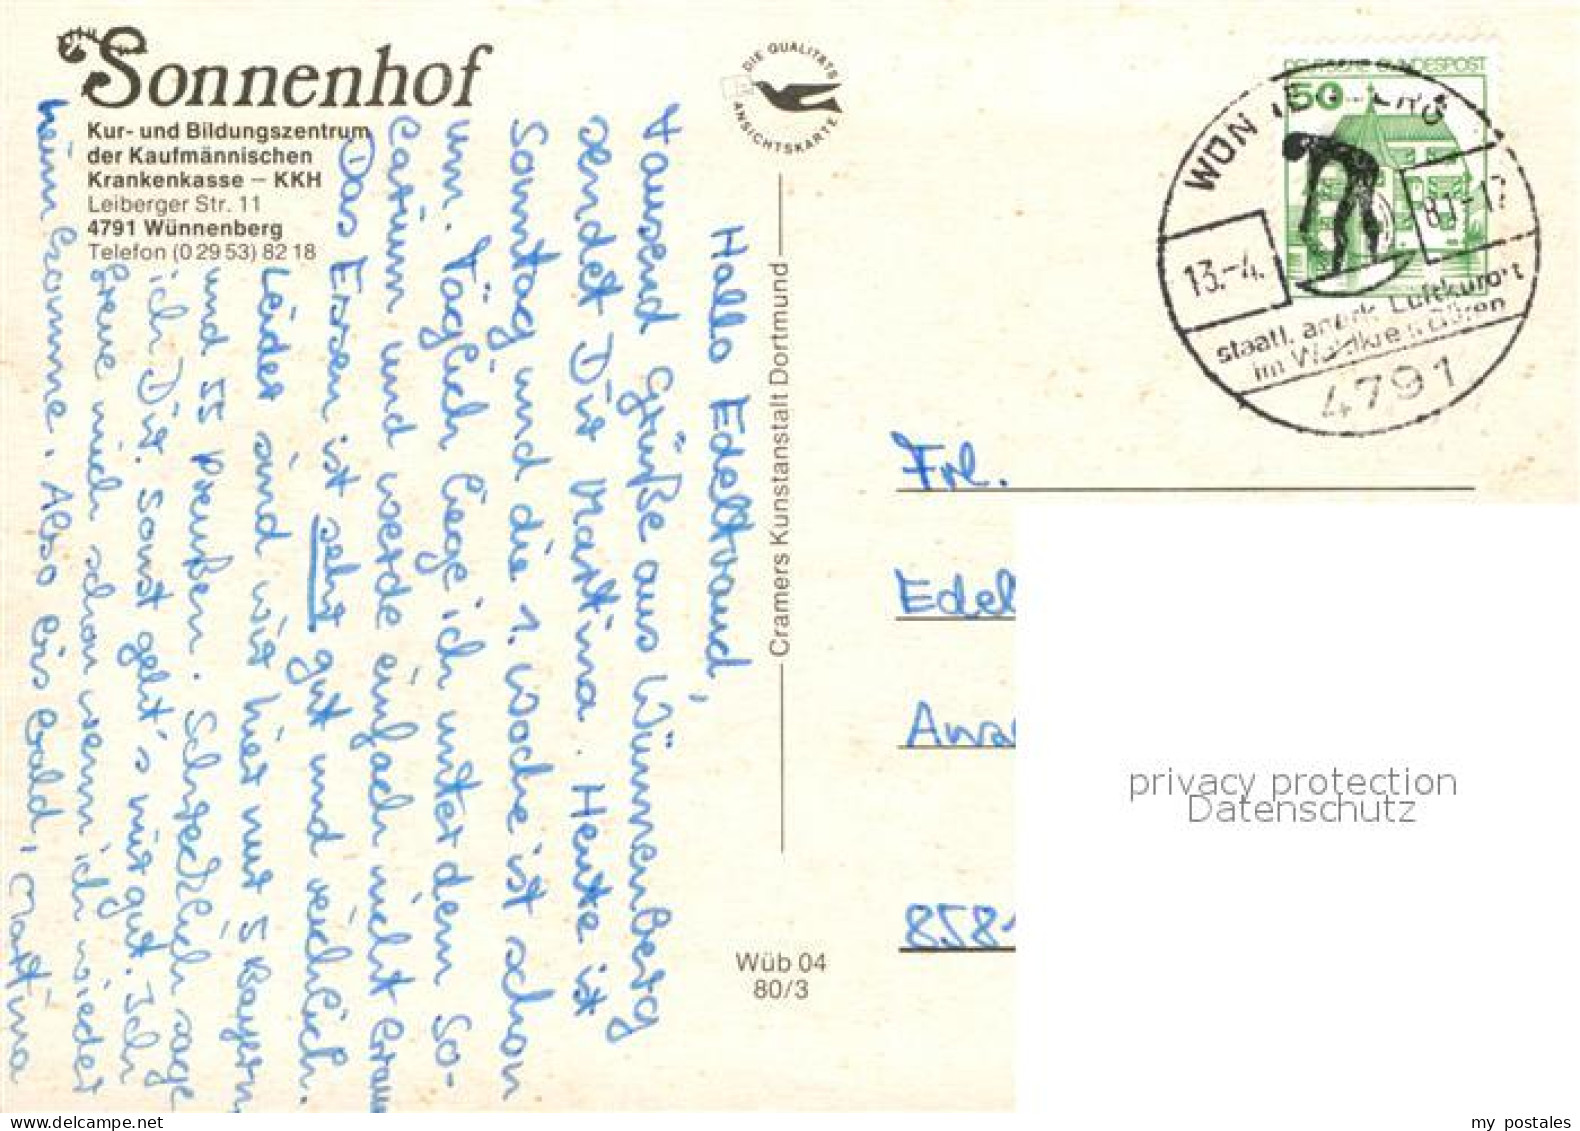 Sonnenhof
Kur- und Bildungszentrum
der Kaufmännischen
Krankenkasse – KKH
Leiberger Str. 11
4791 Wünnenberg
Telefon (0 29 53) 82 18
DIE QUALITÄTS
ANSICHTSKARTE
Hallo Edeltraud,
tausend Grüße aus Wünnenberg
sendet Dir Martina. Heute ist
Sonntag und die 1. Woche ist schon
um. Täglich liege ich unter dem So-
larium und werde einfach nicht braun
Das Essen ist sehr gut und reichlich.
Leider sind wir hier nur 5 Bayern
und 55 Preußen. Schrecklich sage
ich Dir. Sonst geht's mir gut. Ich
freue mich schon wenn ich wieder
heim komme. Also bis bald, Martina
Cramers Kunstanstalt Dortmund
Wüb 04
80/3
DEUTSCHE BUNDESPOST
50
13.-4.
81-17
staatl. anerk. Luftkurort
im Waldkreis Büren
4791
Frl.
Edel
Awa
858
privacy protection
Datenschutz
www.delcampe.net
my postales